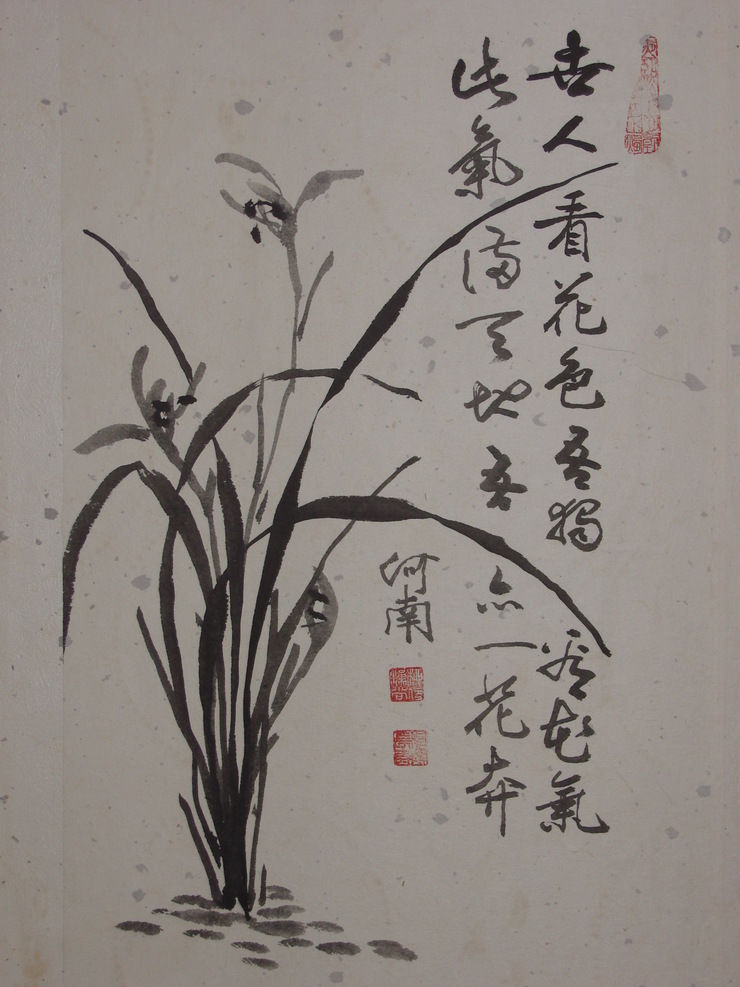 世人看花色吾獨看花氣
此氣滿天地吾亦一花卉
河南